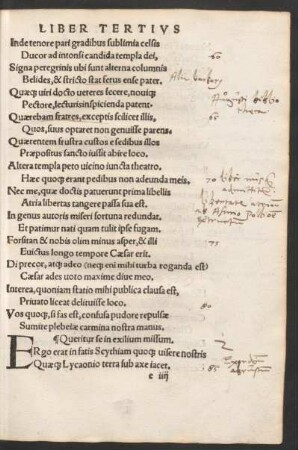 LIBER TERTIVS
Inde tenore pari gradibus sublimia celsis
Ducor ad intonsi candida templa dei,
Signa peregrinis ubi sunt alterna columnis
Belides, & stricto stat ferus ense pater.
Quæq; uiri docto ueteres fecere, nouiq;
Pectore, lecturis inspicienda patent.
Quærebam fratres, exceptis scilicet illis,
Quos, suus optaret non genuisse parens.
Quærentem frustra custos e sedibus illos
Præpositus sancto iussit abire loco.
Altera templa peto uicino iuncta theatro,
Hæc quoq; erant pedibus non adeunda meis.
Nec me, quæ doctis patuerunt prima libellis
Atria libertas tangere passa sua est.
In genus autoris miseri fortuna redundat.
Et patimur nati quam tulit ipse fugam.
Forsitan & nobis olim minus asper, & illi
Euictus longo tempore Cæsar erit.
Di precor, atq; adeo (neq; eni mihi turba roganda est)
Cæsar ades uoto maxime diue meo.
Interea, quoniam statio mihi publica clausa est,
Priuato liceat delituisse loco.
Vos quoq;, si fas est, confusa pudore repulsæ
Sumite plebeiæ carmina nostra manus.
¶Queritur se in exilium missum.
Ergo erat in fatis Scythiam quoq; uisere nostris
Quæq; Lycaonio terra sub axe iacet.
e iiij
60
65
70
75
80
2
85